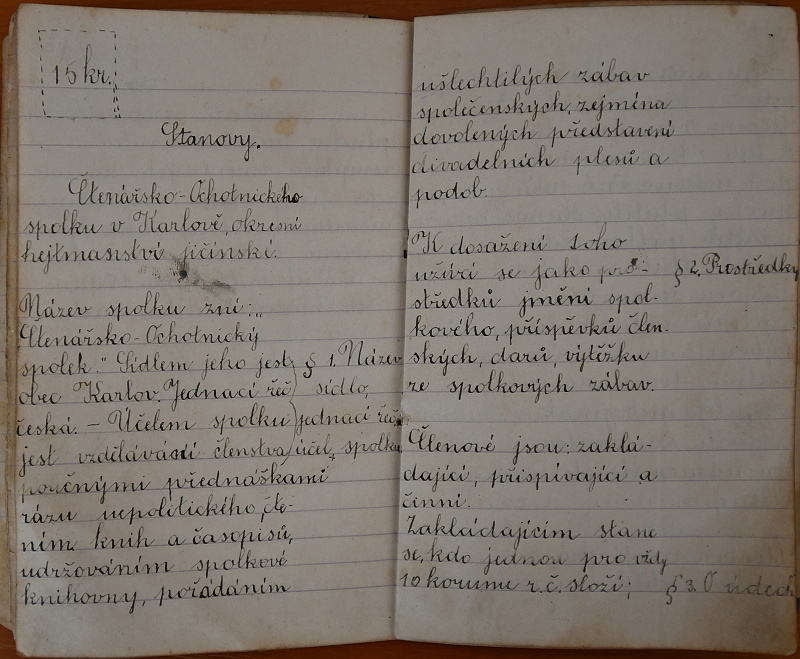 15 kr.
Stanovy.
Čtenářsko-Ochotnického
spolku v Karlově, okresní
hejtmanství jičínské.
Název spolku zní: „
Čtenářsko-Ochotnický
spolek." Sídlem jeho jest
obec Karlov. Jednací řeč
česká. – Účelem spolku
jest vzdělávání členstva
poučnými přednáškami
rázu nepolitického, čte-
ním knih a časopisů,
udržováním spolkové
knihovny, pořádáním
§ 1. Název
sídlo,
jednací řeč
účel, spolku
ušlechtilých zábav
společenských, zejména
dovolených představení
divadelních plesů a
podob.
K dosažení toho
užívá se jako pro-
středků jmění spol-
kového, příspěvků člen-
ských, darů, výtěžku
ze spolkových zábav.
§ 2. Prostředky
Členové jsou: zaklá-
dající, přispívající a
činní.
Zakládajícím stane
se, kdo jednou pro vždy
10 korunu r. č. složí;
§ 3. O údech